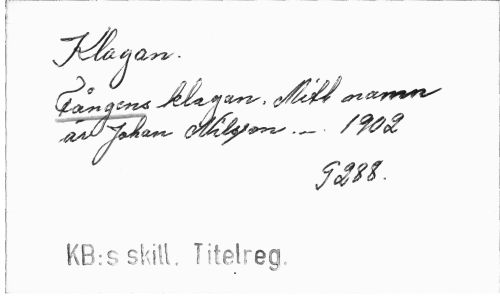 Klagan.
Fångens klagan. Mitt namn
är Johan Nilsson. _ . 1902
G288.
KB:s skill. Titelreg.